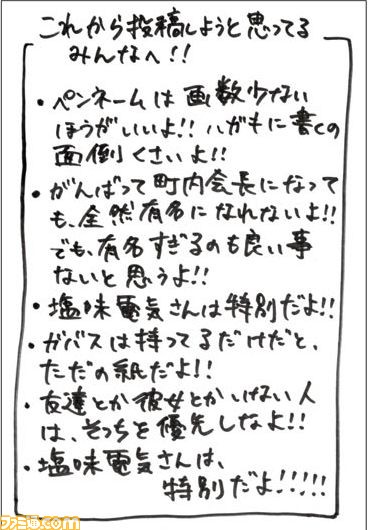 これから投稿しようと思ってる
みんなへ!!
・ペンネームは画数少ない
ほうがいいよ!!ハガキに書くの
面倒くさいよ!!
・がんばって町内会長になって
も、全然有名になれないよ!!
でも、有名すぎるのも良い事
ないと思うよ!!
・塩味電気さんは特別だよ!!
・ガバスは持ってるだけだと、
ただの紙だよ!!
・友達とか彼女とかいない人
は、そっちを優先しなよ!!
・塩味電気さんは、
特別だよ!!!!!
ファミ通.com